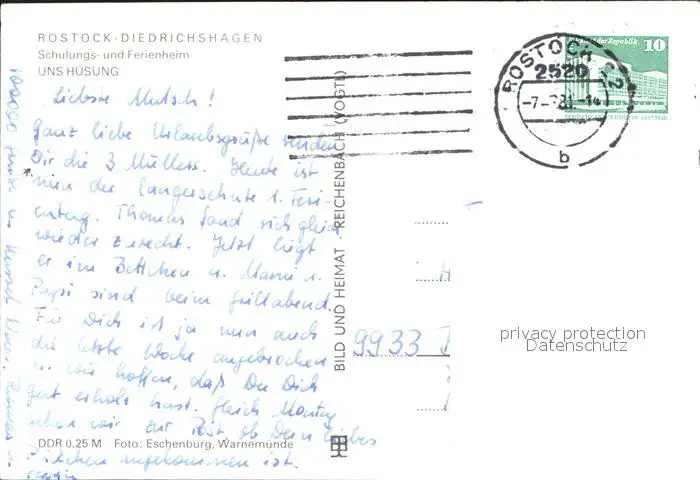 ROSTOCK-DIEDRICHSHAGEN
Schulungs- und Ferienheim
UNS HÜSUNG
Liebste Mutsch!
Ganz liebe Urlaubsgrüße senden
Dir die 3 Müllers. Heute ist
nun der langersehnte 1. Feri-
entag. Thomas fand sich gleich
wieder zurecht. Jetzt liegt
er im Bettchen u. Mami u.
Papi sind beim Grillabend.
Für Dich ist ja nun auch
die letzte Woche angebrochen
u. wir hoffen, daß Du Dich
gut erholt hast. Gleich Montag
sehen wir zur Post, ob Dein liebes
Päckchen angekommen ist.
DDR 0,25 M Foto: Eschenburg, Warnemünde
BILD UND HEIMAT · REICHENBACH (VOGTL)
ROSTOCK
2520
b
10
9933
privacy protection
Datenschutz